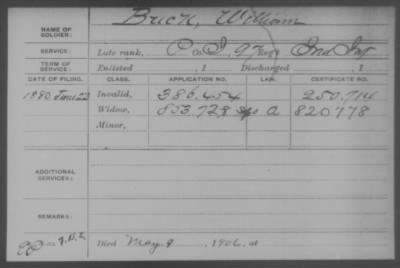 NAME OF SOLDIER: Brick, William
SERVICE: Late rank, P Co. I, 97 Reg't Ind Inf
TERM OF SERVICE: Enlisted , 1 Discharged , 1
DATE OF FILING. CLASS. APPLICATION NO. LAW. CERTIFICATE NO.
1880 June 22 Invalid, 386.454 250.714
Widow, 853.728 a 820778
Minor,
ADDITIONAL SERVICES:
REMARKS:
Died May 9 , 1906, at